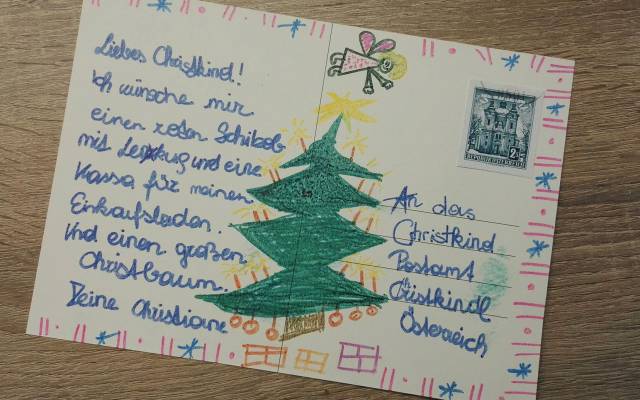 Liebes Christkind!
Ich wünsche mir
einen roten Schibob
mit Lenkug und eine
Kassa für meinen
Einkaufsladen.
Und einen großen
Christbaum.
Deine Christiane
An das
Christkind
Postamt
Christkindl
Österreich
2S
REPUBLIK ÖSTERREICH